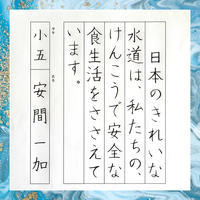 日本のきれいな
水道は、私たちの、
けんこうで安全な
食生活をささえて
います。
小五 安間一加